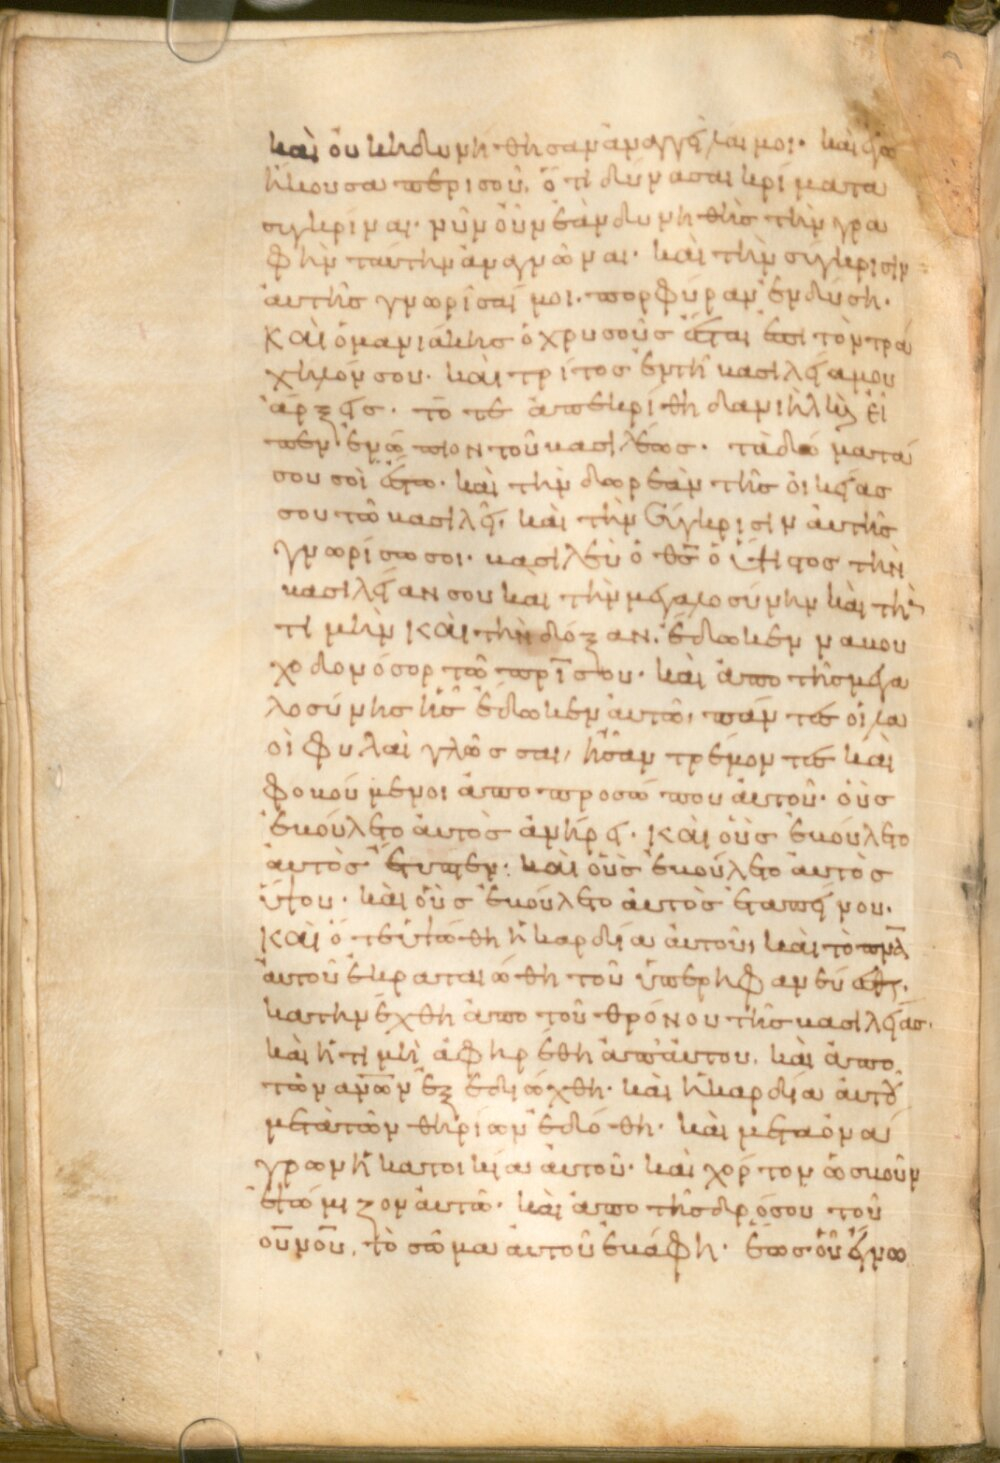 καὶ οὐκ ἠδυνήθησαν ἀναγγεῖλαι μοι· καὶ ἐγὼ
ἤκουσα περὶ σοῦ, ὅτι δύνασαι κρίματα
συγκρῖναι· νῦν οὖν ἐὰν δυνηθῆς τὴν γρα
φὴν ταύτην ἀναγνῶναι· καὶ τὴν σύγκρισιν
αὐτῆς γνωρίσαί μοι· πορφύραν ἐνδύση·
καὶ ὁ μανιάκης ὁ χρυσοῦς ἔσται ἐπὶ τὸν τρά
χηλόν σου· καὶ τρίτος ἐν τῆ βασιλεία μου
ἄρξεις· τότε ἀπεκρίθη δανιὴλ κ(αὶ) εἶ
πεν ἐνώπιον τοῦ βασιλέως· τὰ δόματά
σου σοὶ ἔστω· καὶ τὴν δωρεὰν τῆς οἰκείας
σου τῶ βασιλεῖ, καὶ τὴν σύγκρισιν αὐτῆς
γνωρίσω σοι· βασιλεῦ ὁ θς ὁ ὕψιστος τὴν
βασιλείαν σου καὶ τὴν μεγαλοσύνην καὶ τὴν
τιμὴν καὶ τὴν δόξαν, ἔδωκεν ναβου
χοδονόσορ τῶ πρισου· καὶ ἀπο τῆς μεγα
λοσύνης ἧς ἔδωκεν αὐτῶ, πάντες οἱ λα
οὶ φυλαὶ γλῶσσαι, ἦσαν τρέμοντες καὶ
φοβούμενοι ἀπο προσώπου αὐτοῦ· οὓς
ἐβούλετο αὐτὸς ἀνήρει· καὶ οὓς ἐβούλετο
αὐτὸς ἔτυπεν· καὶ οὓς ἐβούλετο αὐτὸς
ὕψου· καὶ οὓς ἐβούλετο αὐτὸς ἐταπείνου·
καὶ ὅτε ὑψώθη ἡ καρδία αὐτοῦ, καὶ τὸ πνα
αὐτοῦ ἐκραταιώθη τοῦ ὑπερηφανεύσασθαι,
κατηνέχθη ἀπο τοῦ θρόνου τῆς βασιλείας·
καὶ ἡ τιμὴ ἀφηρέθη ἀπ' αὐτου, καὶ ἀπο
τῶν ανων ἐξεδιώχθη· καὶ ἡ καρδία αὐτοῦ
μετὰ τῶν θηρίων ἐδόθη· καὶ μετα ὀνά
γρων ἡ κατοικία αὐτοῦ· καὶ χόρτον ὡς βοῦν
ἐψώμιζον αὐτῶ· καὶ ἀπο τῆς δρόσου τοῦ
ουνου, τὸ σῶμα αὐτοῦ ἐβάφη· ἕως οὗ ἔγνω